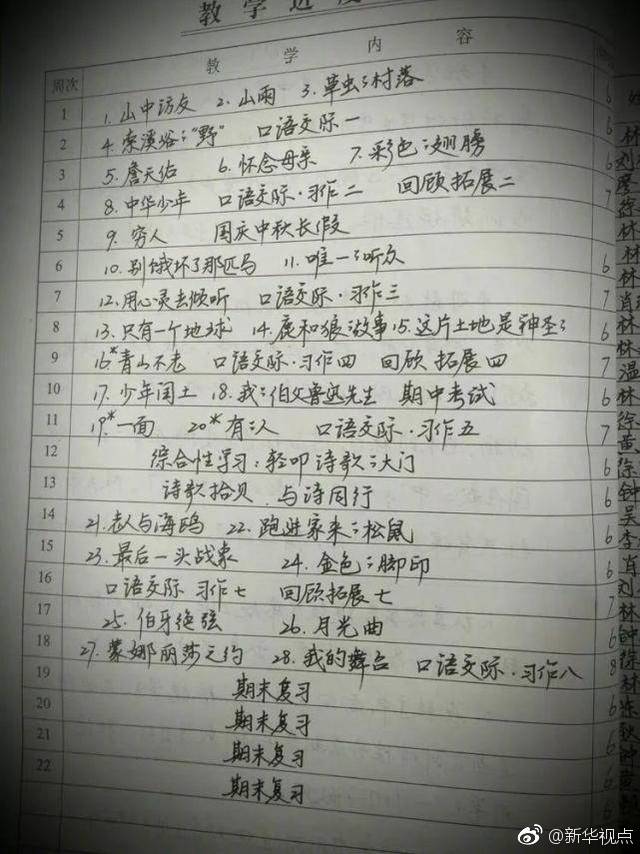 教学进度
周次 教学内容
1 1.山中访友 2.山雨 3.草虫的村落
2 4.索溪峪的"野" 口语交际一
3 5.詹天佑 6.怀念母亲 7.彩色的翅膀
4 8.中华少年 口语交际·习作二 回顾拓展二
5 9.穷人 国庆中秋长假
6 10.别饿坏了那匹马 11.唯一的听众 6
7 12.用心灵去倾听 口语交际·习作三 7
8 13.只有一个地球 14.鹿和狼的故事 15.这片土地是神圣的 6
9 16*青山不老 口语交际·习作四 回顾拓展四 7
10 17.少年闰土 18.我的伯父鲁迅先生 期中考试 6
11 19*一面 20*有的人 口语交际·习作五 7
12 综合性学习:轻叩诗歌的大门 6
13 诗歌拾贝 与诗同行 6
14 21.老人与海鸥 22.跑进家来的松鼠 6
15 23.最后一头战象 24.金色的脚印 6
16 口语交际 习作七 回顾拓展七 7
17 25.伯牙绝弦 26.月光曲 6
18 27.蒙娜丽莎之约 28.我的舞台 口语交际·习作八 8
19 期末复习 6
20 期末复习 6
21 期末复习 6
22 期末复习 6
@新华视点